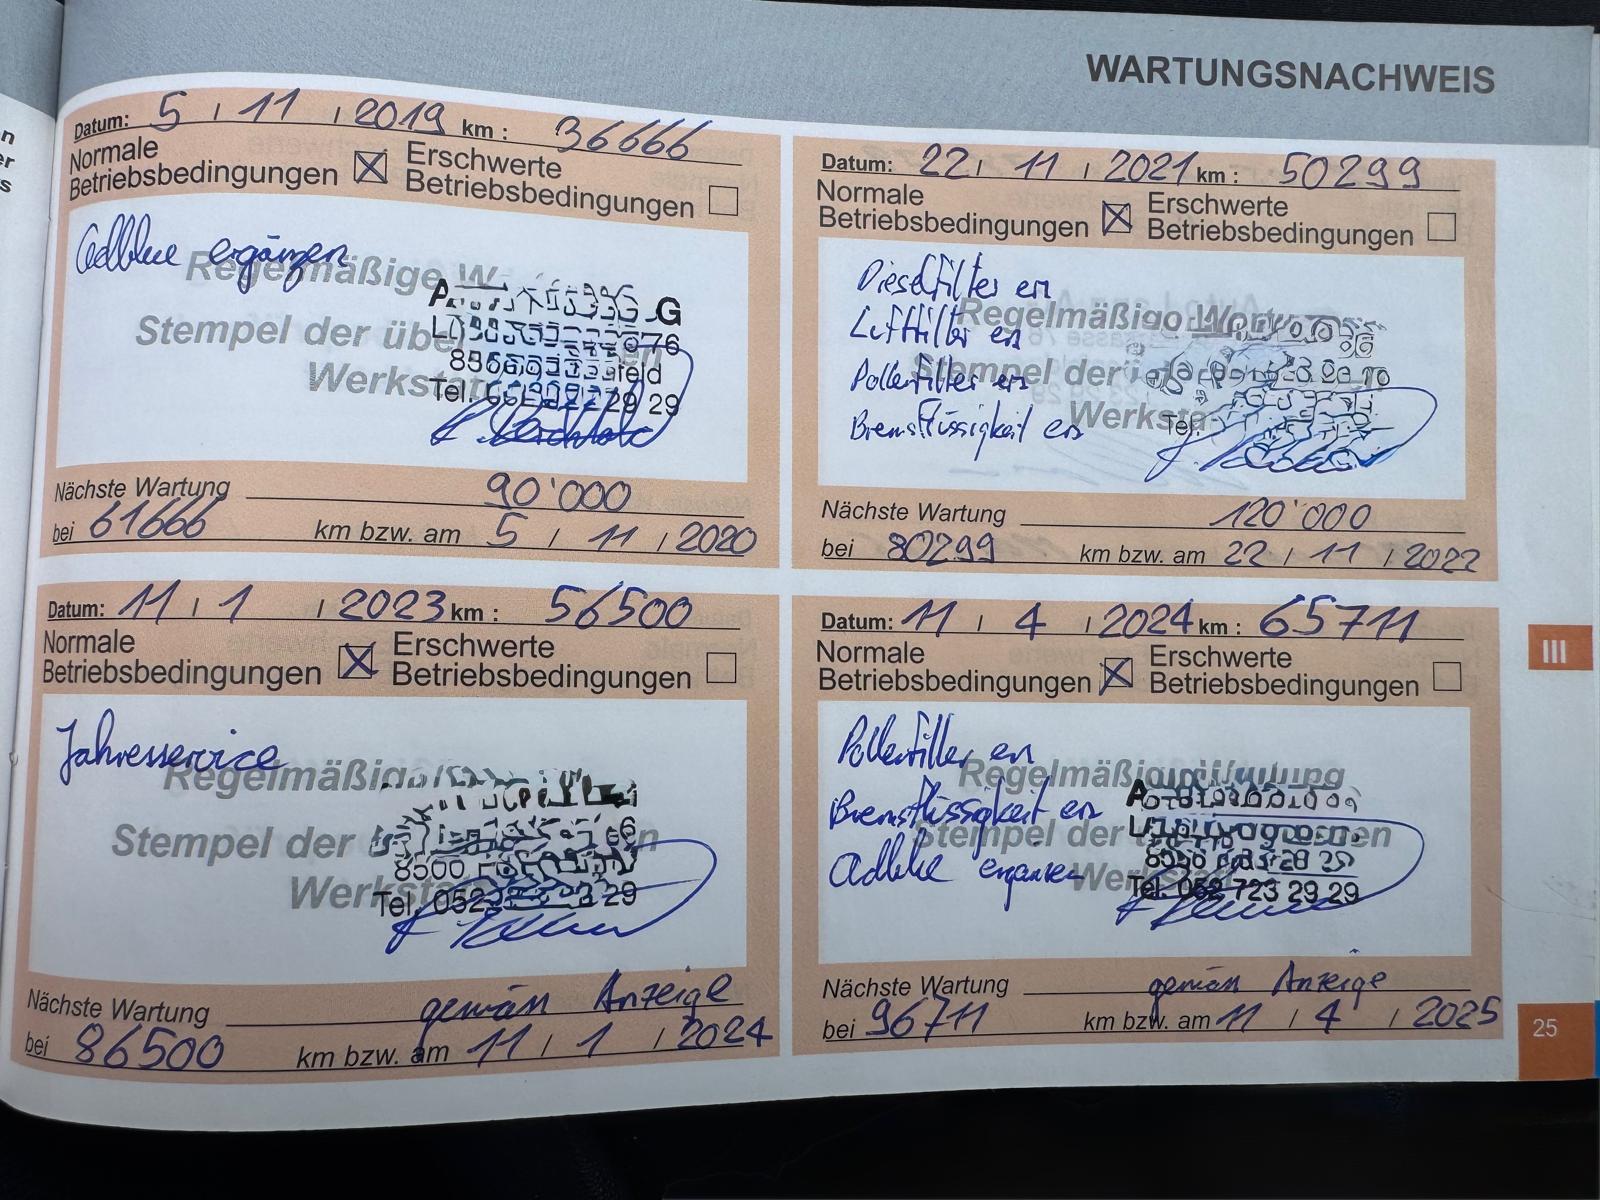 WARTUNGSNACHWEIS
Datum: 5 / 11 / 2019 km : 36666
Normale
Betriebsbedingungen
Erschwerte
Betriebsbedingungen
Adblue ergänzen
Regelmäßige
Stempel der
Werkstatt
Nächste Wartung 90'000
bei 61666 km bzw. am 5 / 11 / 2020
Datum: 22 / 11 / 2021 km : 50299
Normale
Betriebsbedingungen
Erschwerte
Betriebsbedingungen
Dieselfilter ern
Luftfilter ern
Pollenfilter ern
Bremsflüssigkeit ern
Regelmäßige
Stempel der
Nächste Wartung 120'000
bei 80299 km bzw. am 22 / 11 / 2022
Datum: 11 / 1 / 2023 km : 56500
Normale
Betriebsbedingungen
Erschwerte
Betriebsbedingungen
Jahresservice
Stempel der
Nächste Wartung gemäss Anzeige
bei 86500 km bzw. am 11 / 1 / 2024
Datum: 11 / 4 / 2024 km : 65711
Normale
Betriebsbedingungen
Erschwerte
Betriebsbedingungen
Pollenfilter ern
Bremsflüssigkeit ern
Adblue ergänzen
Stempel der
Tel. 052 723 29 29
Nächste Wartung gemäss Anzeige
bei 96711 km bzw. am 11 / 4 / 2025
III
25